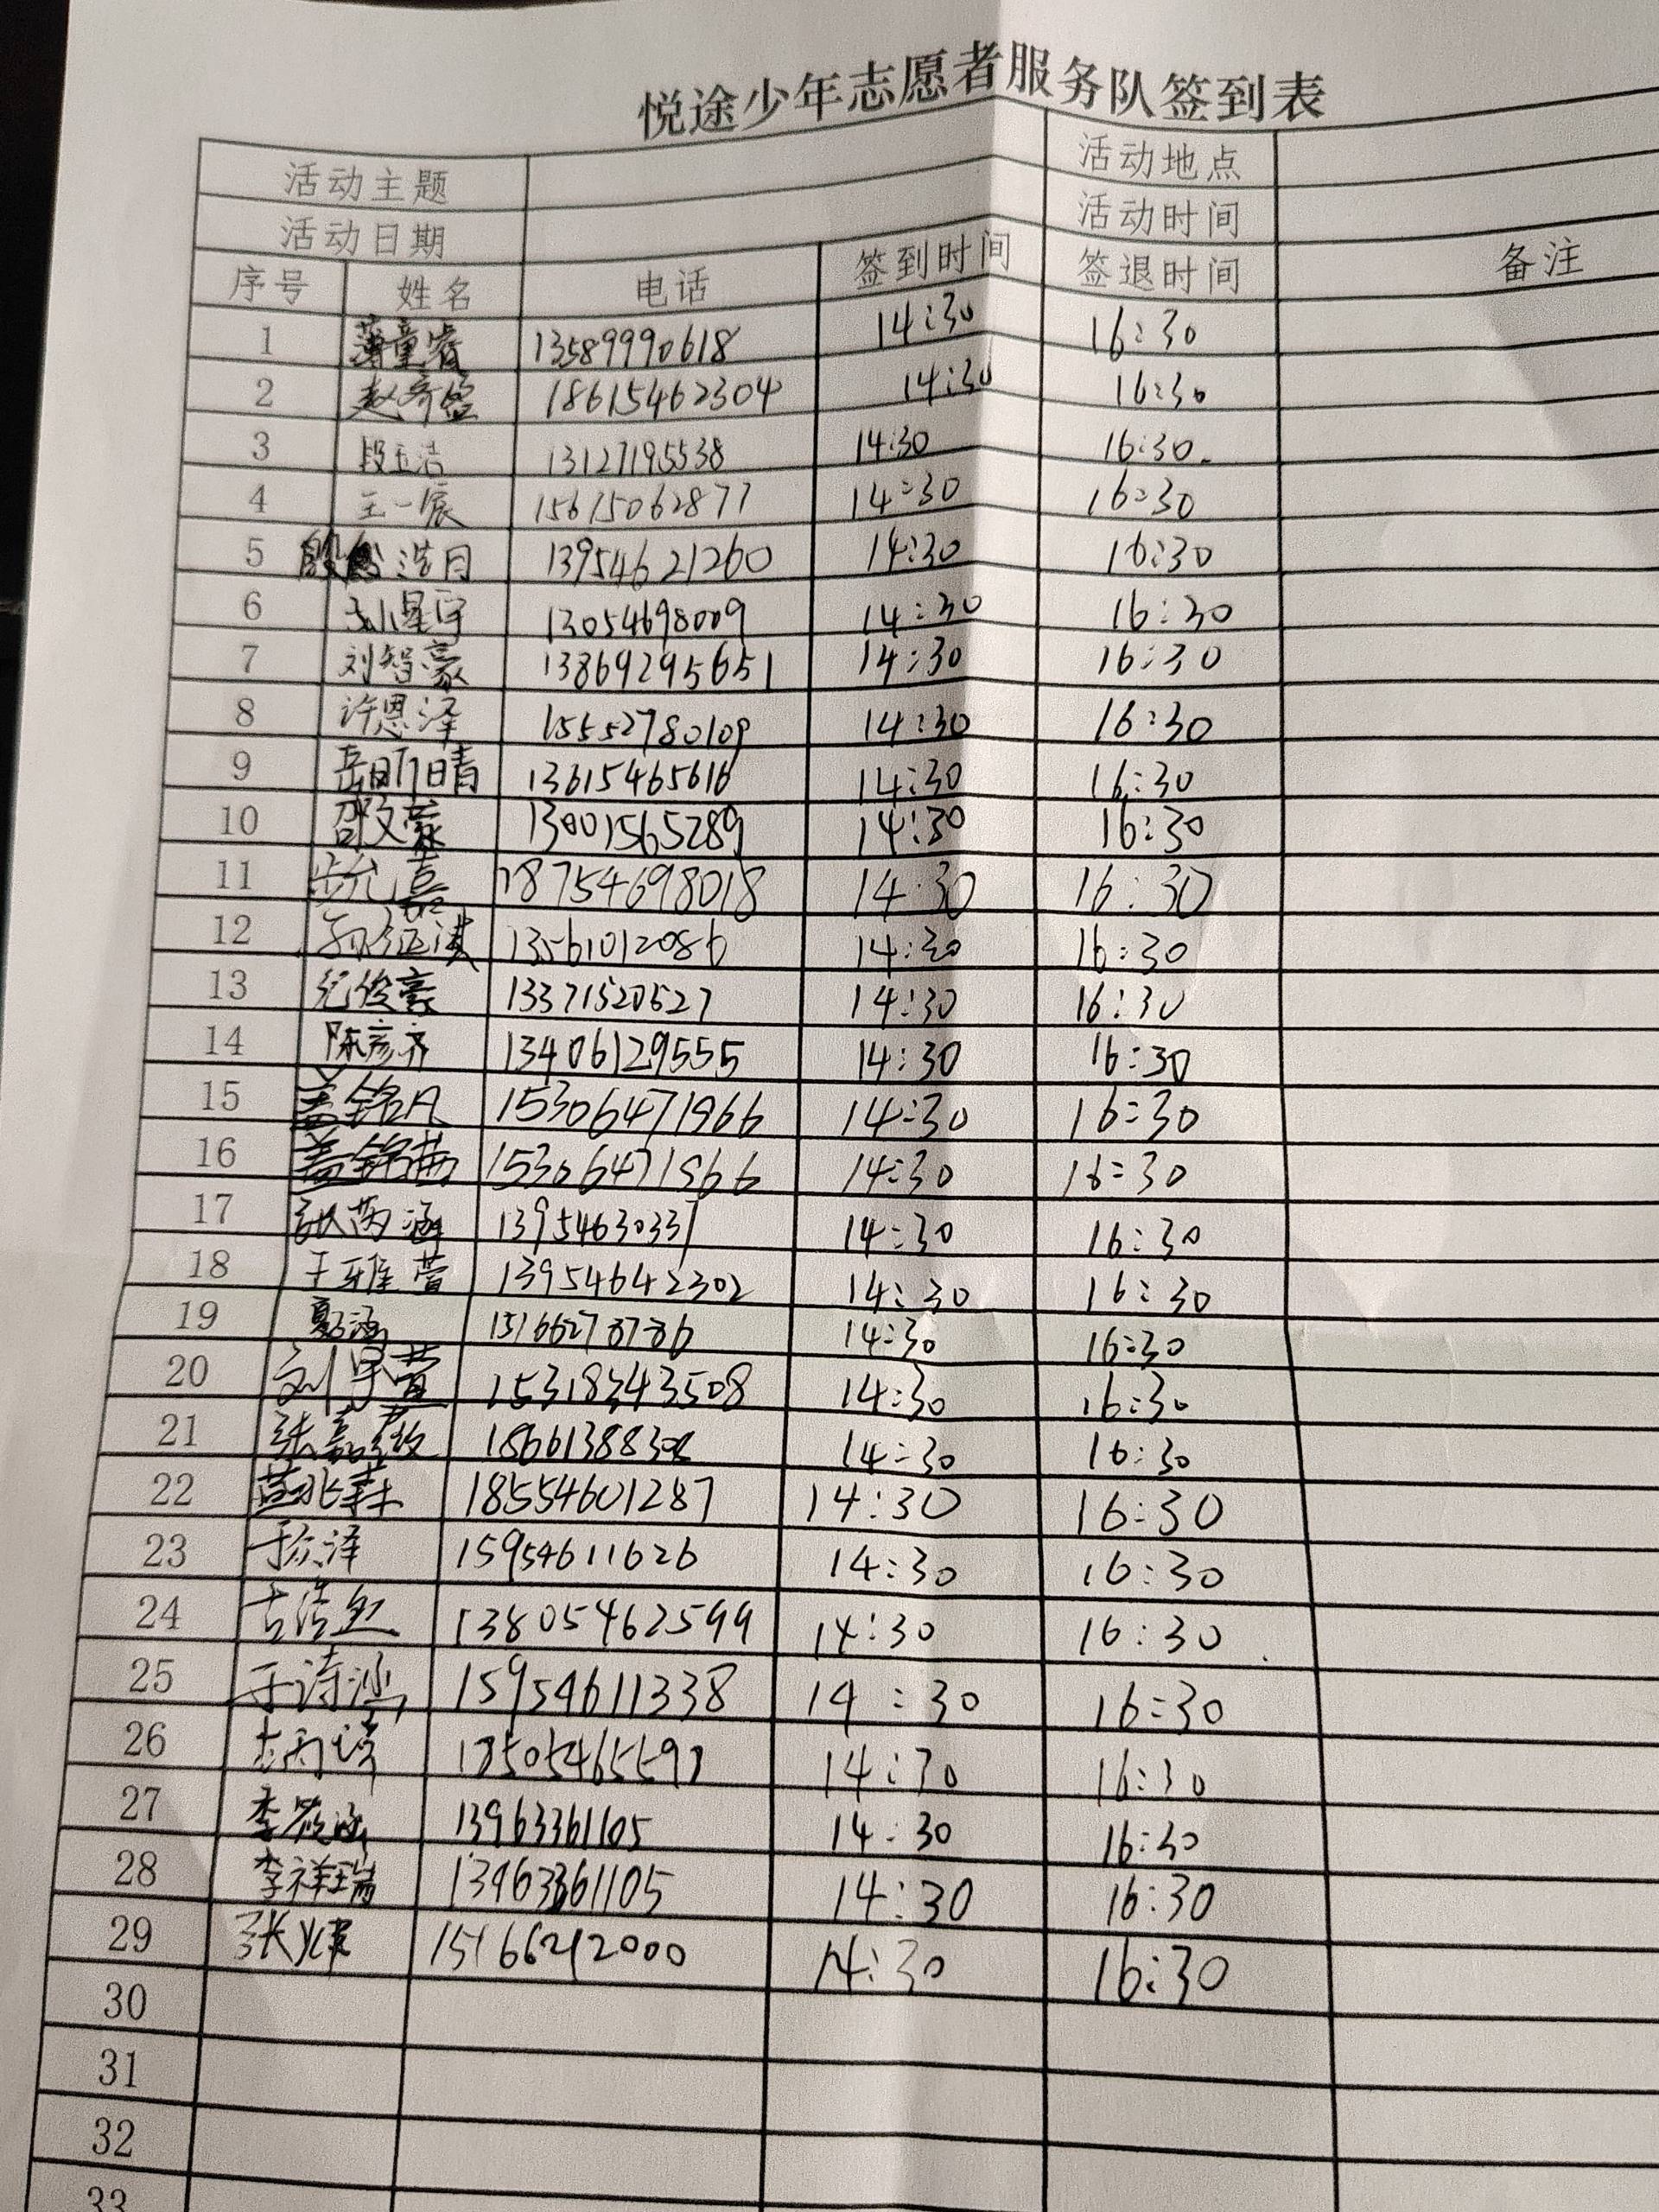 悦途少年志愿者服务队签到表
活动主题 活动地点
活动日期 活动时间
序号 姓名 电话 签到时间 签退时间 备注
1 薄童睿 13589990618 14:30 16:30
2 18615462304 14:30 16:30
3 段玉洁 13127195538 14:30 16:30
4 王一宸 15675062877 14:30 16:30
5 殷浩月 13954621260 14:30 16:30
6 孙星宇 13054698009 14:30 16:30
7 刘智豪 13869295651 14:30 16:30
8 许恩泽 15552780109 14:30 16:30
9 岳昕晴 13615465616 14:30 16:30
10 邵文豪 13001565289 14:30 16:30
11 18754698018 14:30 16:30
12 13561012086 14:30 16:30
13 纪俊豪 13371520527 14:30 16:30
14 陈彦齐 13406129555 14:30 16:30
15 盖铭凡 15306471966 14:30 16:30
16 15306471966 14:30 16:30
17 14:30 16:30
18 王雅萱 13954642302 14:30 16:30
19 14:30 16:30
20 15318343508 14:30 16:30
21 14:30 16:30
22 18554601287 14:30 16:30
23 15954611626 14:30 16:30
24 13805462599 14:30 16:30
25 于诗涵 15954611338 14:30 16:30
26 14:30 16:30
27 13963361105 14:30 16:30
28 李祥瑞 13963361105 14:30 16:30
29 15166212000 14:30 16:30
30
31
32
33